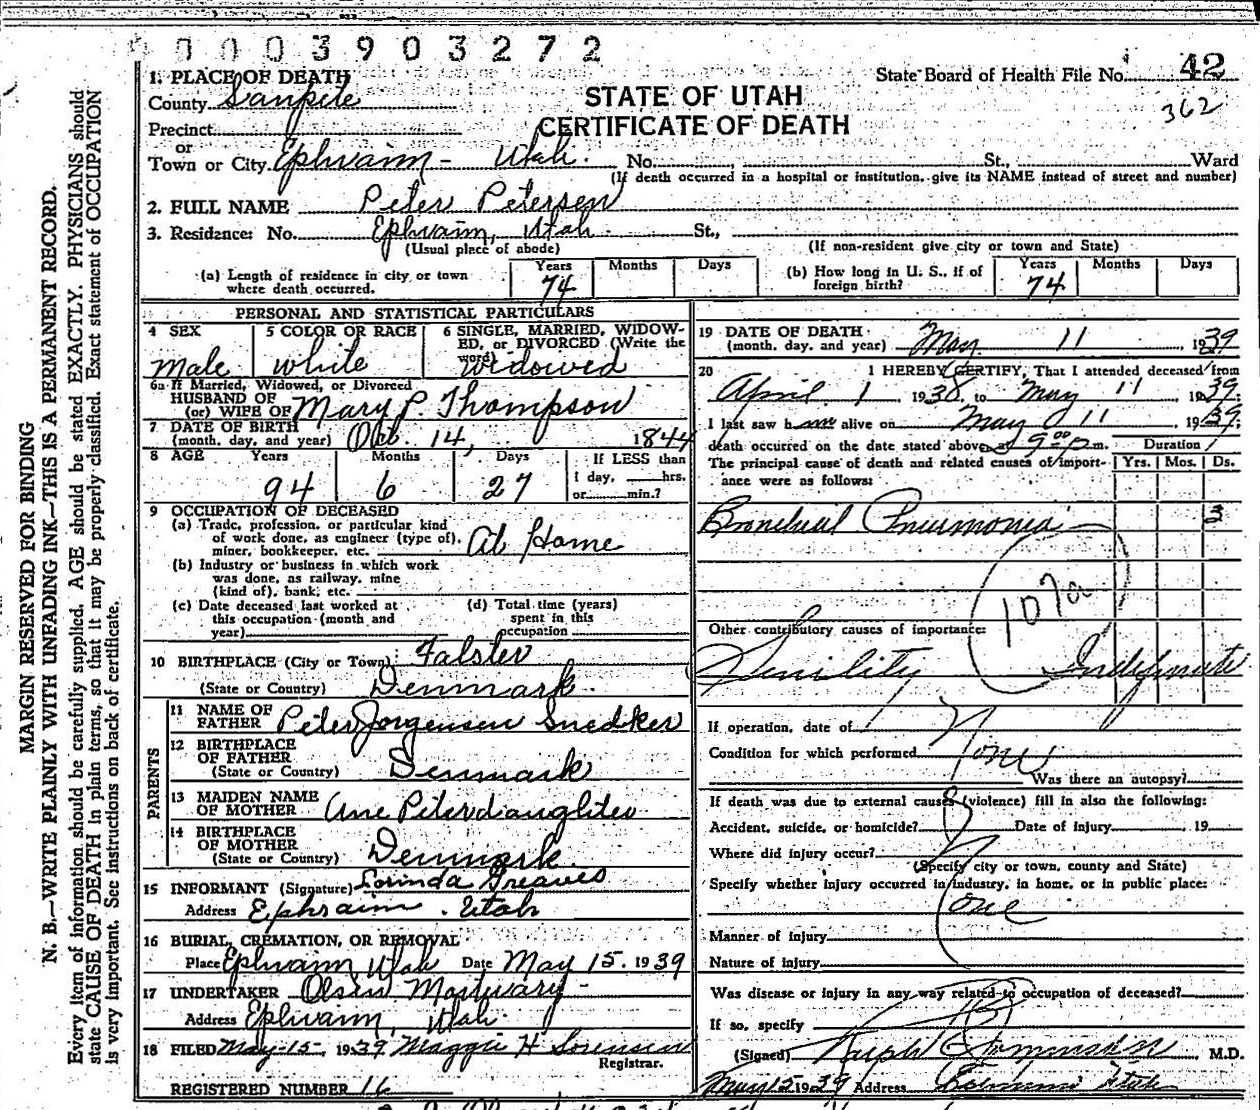 0003903272
State Board of Health File No. 42
362
1. PLACE OF DEATH
County Sanpete
STATE OF UTAH
CERTIFICATE OF DEATH
Precinct
or
Town or City Ephraim - Utah. No. St., Ward
(If death occurred in a hospital or institution, give its NAME instead of street and number)
2. FULL NAME Peter Petersen
3. Residence: No. Ephraim, Utah. St.,
(Usual place of abode) (If non-resident give city or town and State)
(a) Length of residence in city or town where death occurred. Years 74 Months Days
(b) How long in U. S., if of foreign birth? Years 74 Months Days
PERSONAL AND STATISTICAL PARTICULARS
4 SEX male
5 COLOR OR RACE white
6 SINGLE, MARRIED, WIDOW-
ED, or DIVORCED (Write the
word) Widowed
6a If Married, Widowed, or Divorced
HUSBAND OF
(or) WIFE OF Mary P. Thompson
7 DATE OF BIRTH
(month, day, and year) Oct. 14, 1844
8 AGE Years 94 Months 6 Days 27
If LESS than
1 day, hrs.
or min.?
9 OCCUPATION OF DECEASED
(a) Trade, profession, or particular kind
of work done, as engineer (type of),
miner, bookkeeper, etc. At Home
(b) Industry or business in which work
was done, as railway, mine
(kind of), bank, etc.
(c) Date deceased last worked at
this occupation (month and
year)
(d) Total time (years)
spent in this
occupation
10 BIRTHPLACE (City or Town) Falster
(State or Country) Denmark.
PARENTS
11 NAME OF
FATHER Peter Jorgensen Snedker
12 BIRTHPLACE
OF FATHER
(State or Country) Denmark
13 MAIDEN NAME
OF MOTHER Ane Petersdaughter
14 BIRTHPLACE
OF MOTHER
(State or Country) Denmark.
15 INFORMANT (Signature) Lorinda Greaves
Address Ephraim, Utah
16 BURIAL, CREMATION, OR REMOVAL
Place Ephraim, Utah Date May 15, 1939
17 UNDERTAKER Olsen Mortuary -
Address Ephraim, Utah.
18 FILED May-15-, 1939 Maggie H Sorensen
Registrar.
REGISTERED NUMBER 16
19 DATE OF DEATH
(month, day, and year) May 11, 1939
20 I HEREBY CERTIFY, That I attended deceased from
April 1, 1938, to May 11, 1939;
I last saw him alive on May 11, 1939;
death occurred on the date stated above, at 9:00 p m. Duration
The principal cause of death and related causes of import-
ance were as follows: Yrs. Mos. Ds.
Bronchial Pneumonia 3
107a
Other contributory causes of importance:
Senility Indefinite
If operation, date of
Condition for which performed None
Was there an autopsy?
If death was due to external causes (violence) fill in also the following:
Accident, suicide, or homicide? Date of injury , 19
Where did injury occur?
(Specify city or town, county and State)
Specify whether injury occurred in industry, in home, or in public place:
None
Manner of injury
Nature of injury
Was disease or injury in any way related to occupation of deceased?
If so, specify
(Signed) Ralph , M.D.
May 15 1939 Address Ephraim Utah
MARGIN RESERVED FOR BINDING
N. B.—WRITE PLAINLY WITH UNFADING INK—THIS IS A PERMANENT RECORD.
Every item of information should be carefully supplied. AGE should be stated EXACTLY. PHYSICIANS should
state CAUSE OF DEATH in plain terms, so that it may be properly classified. Exact statement of OCCUPATION
is very important. See instructions on back of certificate.